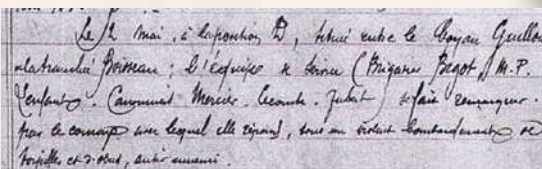 Le 2 mai, à la position D, situé entre le Boyau Guillou
et la tranchée Boisseau ; l'équipe de service (Brigadier Bagot, M.P.
Lenfant. Canonniers Mercier. Lecomte. Jubert) se fait remarquer.
par le courage avec lequel elle répond, sous un violent bombardement de
torpilles et d'obus, au tir ennemi.